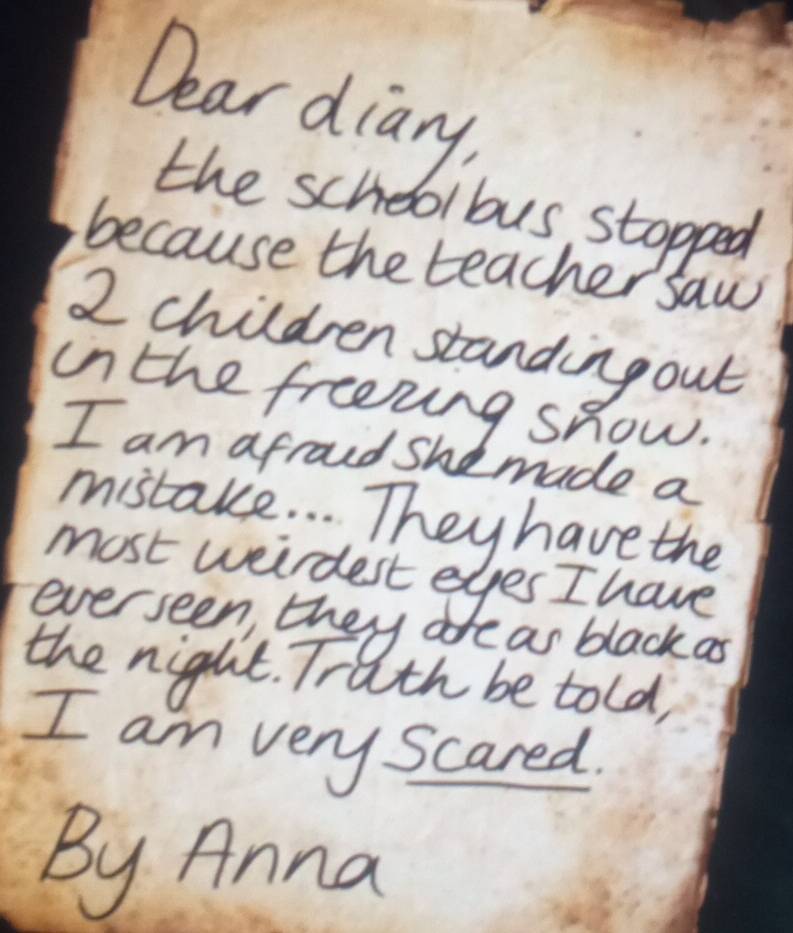 Dear diary,
the school bus stopped
because the teacher saw
2 children standing out
in the freezing snow.
I am afraid she made a
mistake... They have the
most weirdest eyes I have
ever seen, they are as black as
the night. Truth be told,
I am very scared.
By Anna